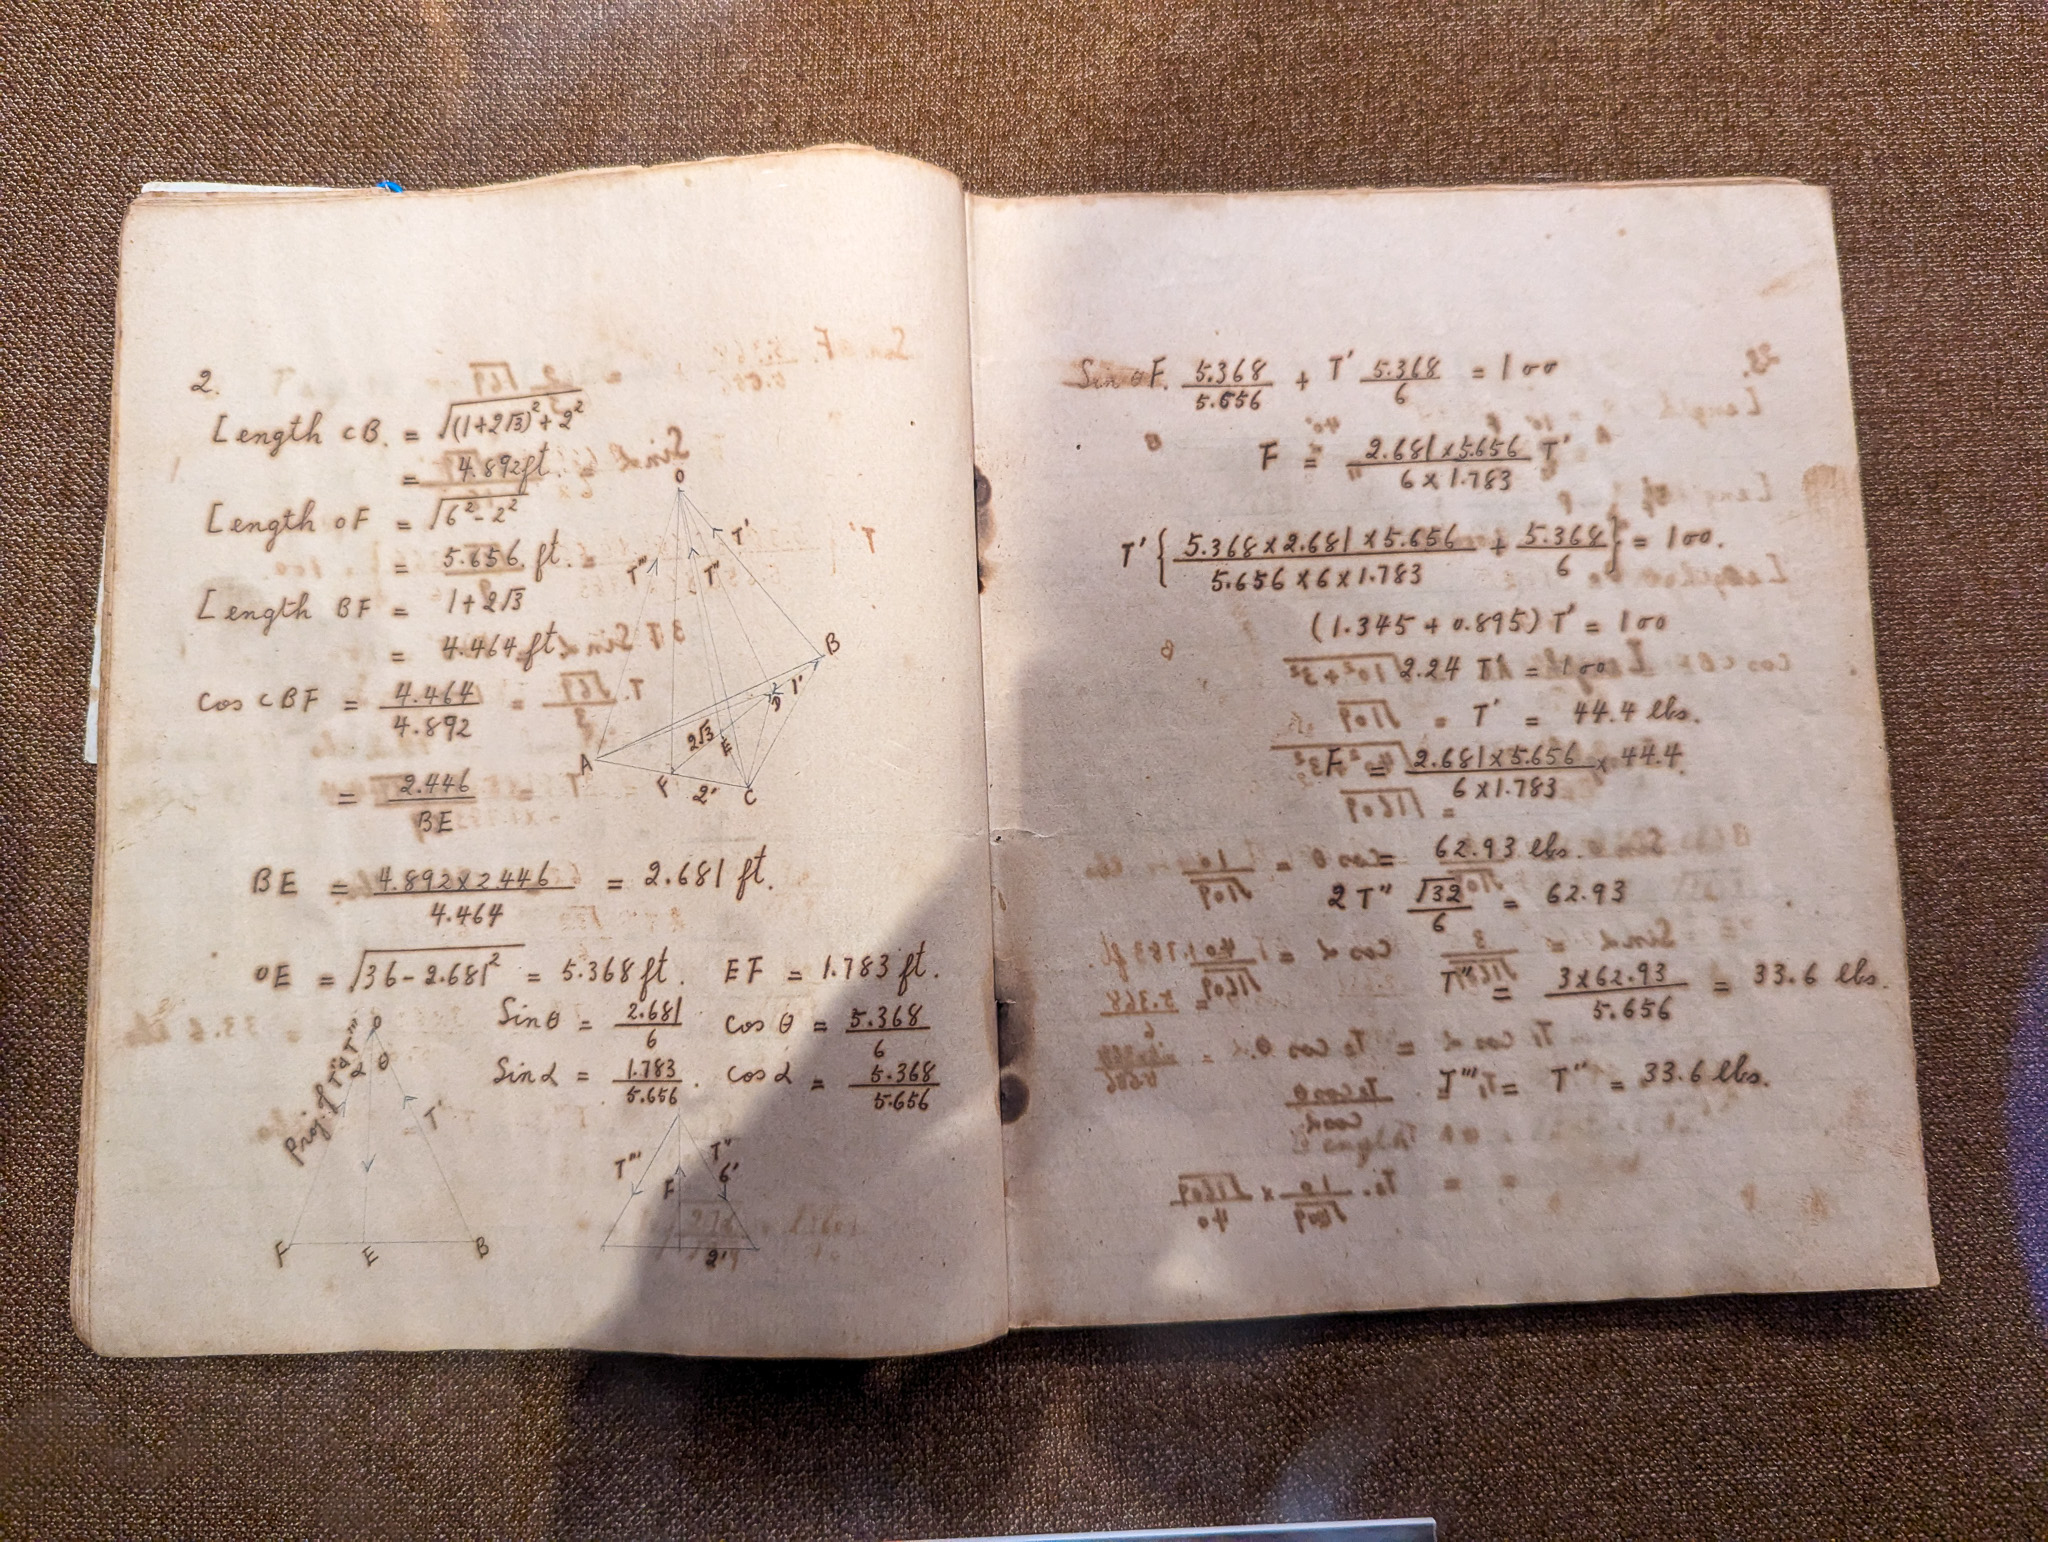 2.
Length CB. = √((1+2√3)²+2²)
= 4.892 ft.
Length OF = √(6²-2²)
= 5.656 ft.
Length BF = 1+2√3
= 4.464 ft.
Cos CBF = 4.464/4.892
= 2.446/BE
BE = 4.892×2.446/4.464 = 2.681 ft.
OE = √(36-2.681²) = 5.368 ft. EF = 1.783 ft.
Sin θ = 2.681/6 Cos θ = 5.368/6
Sin α = 1.783/5.656. Cos α = 5.368/5.656
O
T' T'' T'''
B
1'
D
2√3
E
A
F 2' C
O
α θ
Proj of T'' & T'''
T'
F E B
T''' T''
F 6'
2'
Sin θ F. 5.368/5.656 + T' 5.368/6 = 100
F = 2.681×5.656/6×1.783 T'
T' { 5.368×2.681×5.656/5.656×6×1.783 + 5.368/6 } = 100.
(1.345 + 0.895) T' = 100
2.24 T' = 100
T' = 44.4 lbs.
F = 2.681×5.656/6×1.783 × 44.4
= 62.93 lbs.
2 T'' √32/6 = 62.93
T'' = 3×62.93/5.656 = 33.6 lbs.
T''' = T'' = 33.6 lbs.